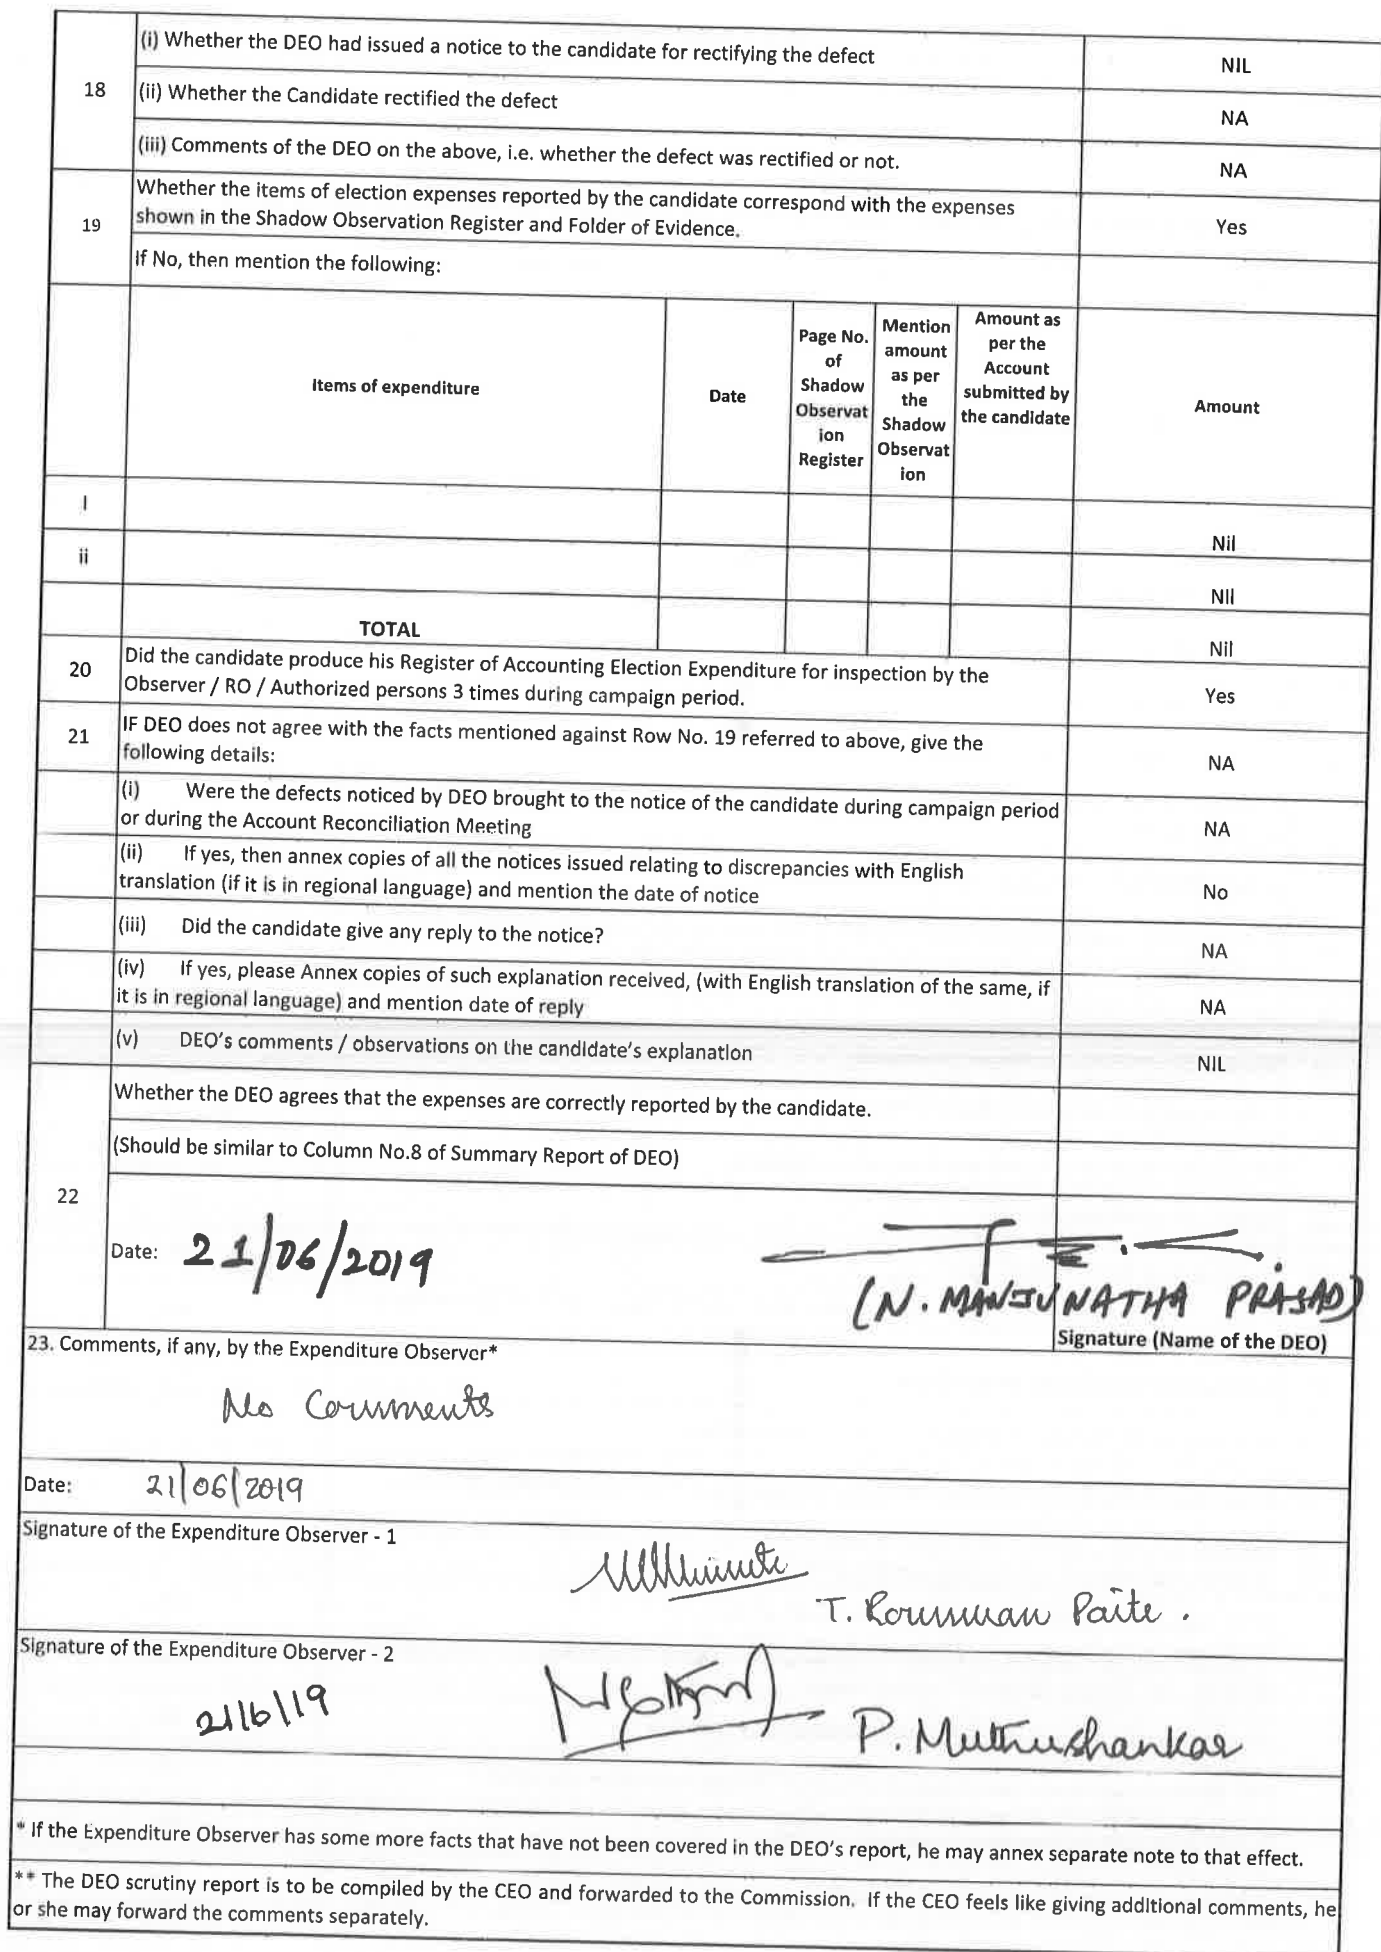 18
(i) Whether the DEO had issued a notice to the candidate for rectifying the defect
NIL
(ii) Whether the Candidate rectified the defect
NA
(iii) Comments of the DEO on the above, i.e. whether the defect was rectified or not.
NA
19
Whether the items of election expenses reported by the candidate correspond with the expenses
shown in the Shadow Observation Register and Folder of Evidence.
Yes
If No, then mention the following:
Items of expenditure
Date
Page No.
of
Shadow
Observat
ion
Register
Mention
amount
as per
the
Shadow
Observat
ion
Amount as
per the
Account
submitted by
the candidate
Amount
I
Nil
ii
Nil
TOTAL
Nil
20
Did the candidate produce his Register of Accounting Election Expenditure for inspection by the
Observer / RO / Authorized persons 3 times during campaign period.
Yes
21
IF DEO does not agree with the facts mentioned against Row No. 19 referred to above, give the
following details:
NA
(i) Were the defects noticed by DEO brought to the notice of the candidate during campaign period
or during the Account Reconciliation Meeting
NA
(ii) If yes, then annex copies of all the notices issued relating to discrepancies with English
translation (if it is in regional language) and mention the date of notice
No
(iii) Did the candidate give any reply to the notice?
NA
(iv) If yes, please Annex copies of such explanation received, (with English translation of the same, if
it is in regional language) and mention date of reply
NA
(v) DEO's comments / observations on the candidate's explanation
NIL
22
Whether the DEO agrees that the expenses are correctly reported by the candidate.
(Should be similar to Column No.8 of Summary Report of DEO)
Date: 21/06/2019
(N. MANJUNATHA PRASAD)
Signature (Name of the DEO)
23. Comments, if any, by the Expenditure Observer*
No Comments
Date: 21/06/2019
Signature of the Expenditure Observer - 1
T. Roumuan Paite.
Signature of the Expenditure Observer - 2
21/6/19
P. Muthushankar
* If the Expenditure Observer has some more facts that have not been covered in the DEO's report, he may annex separate note to that effect.
** The DEO scrutiny report is to be compiled by the CEO and forwarded to the Commission. If the CEO feels like giving additional comments, he
or she may forward the comments separately.